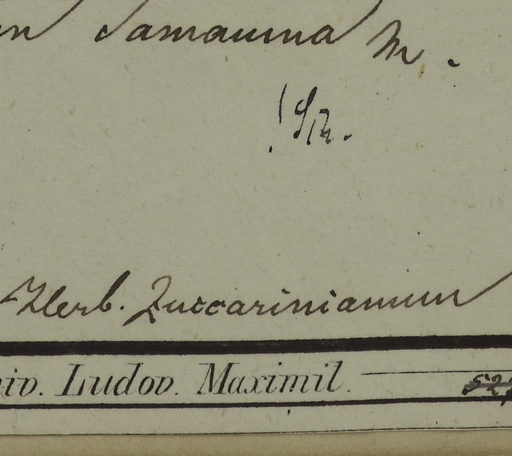 Samauma M.
Herb. Zuccarinianum
iv. Ludov. Maximil.